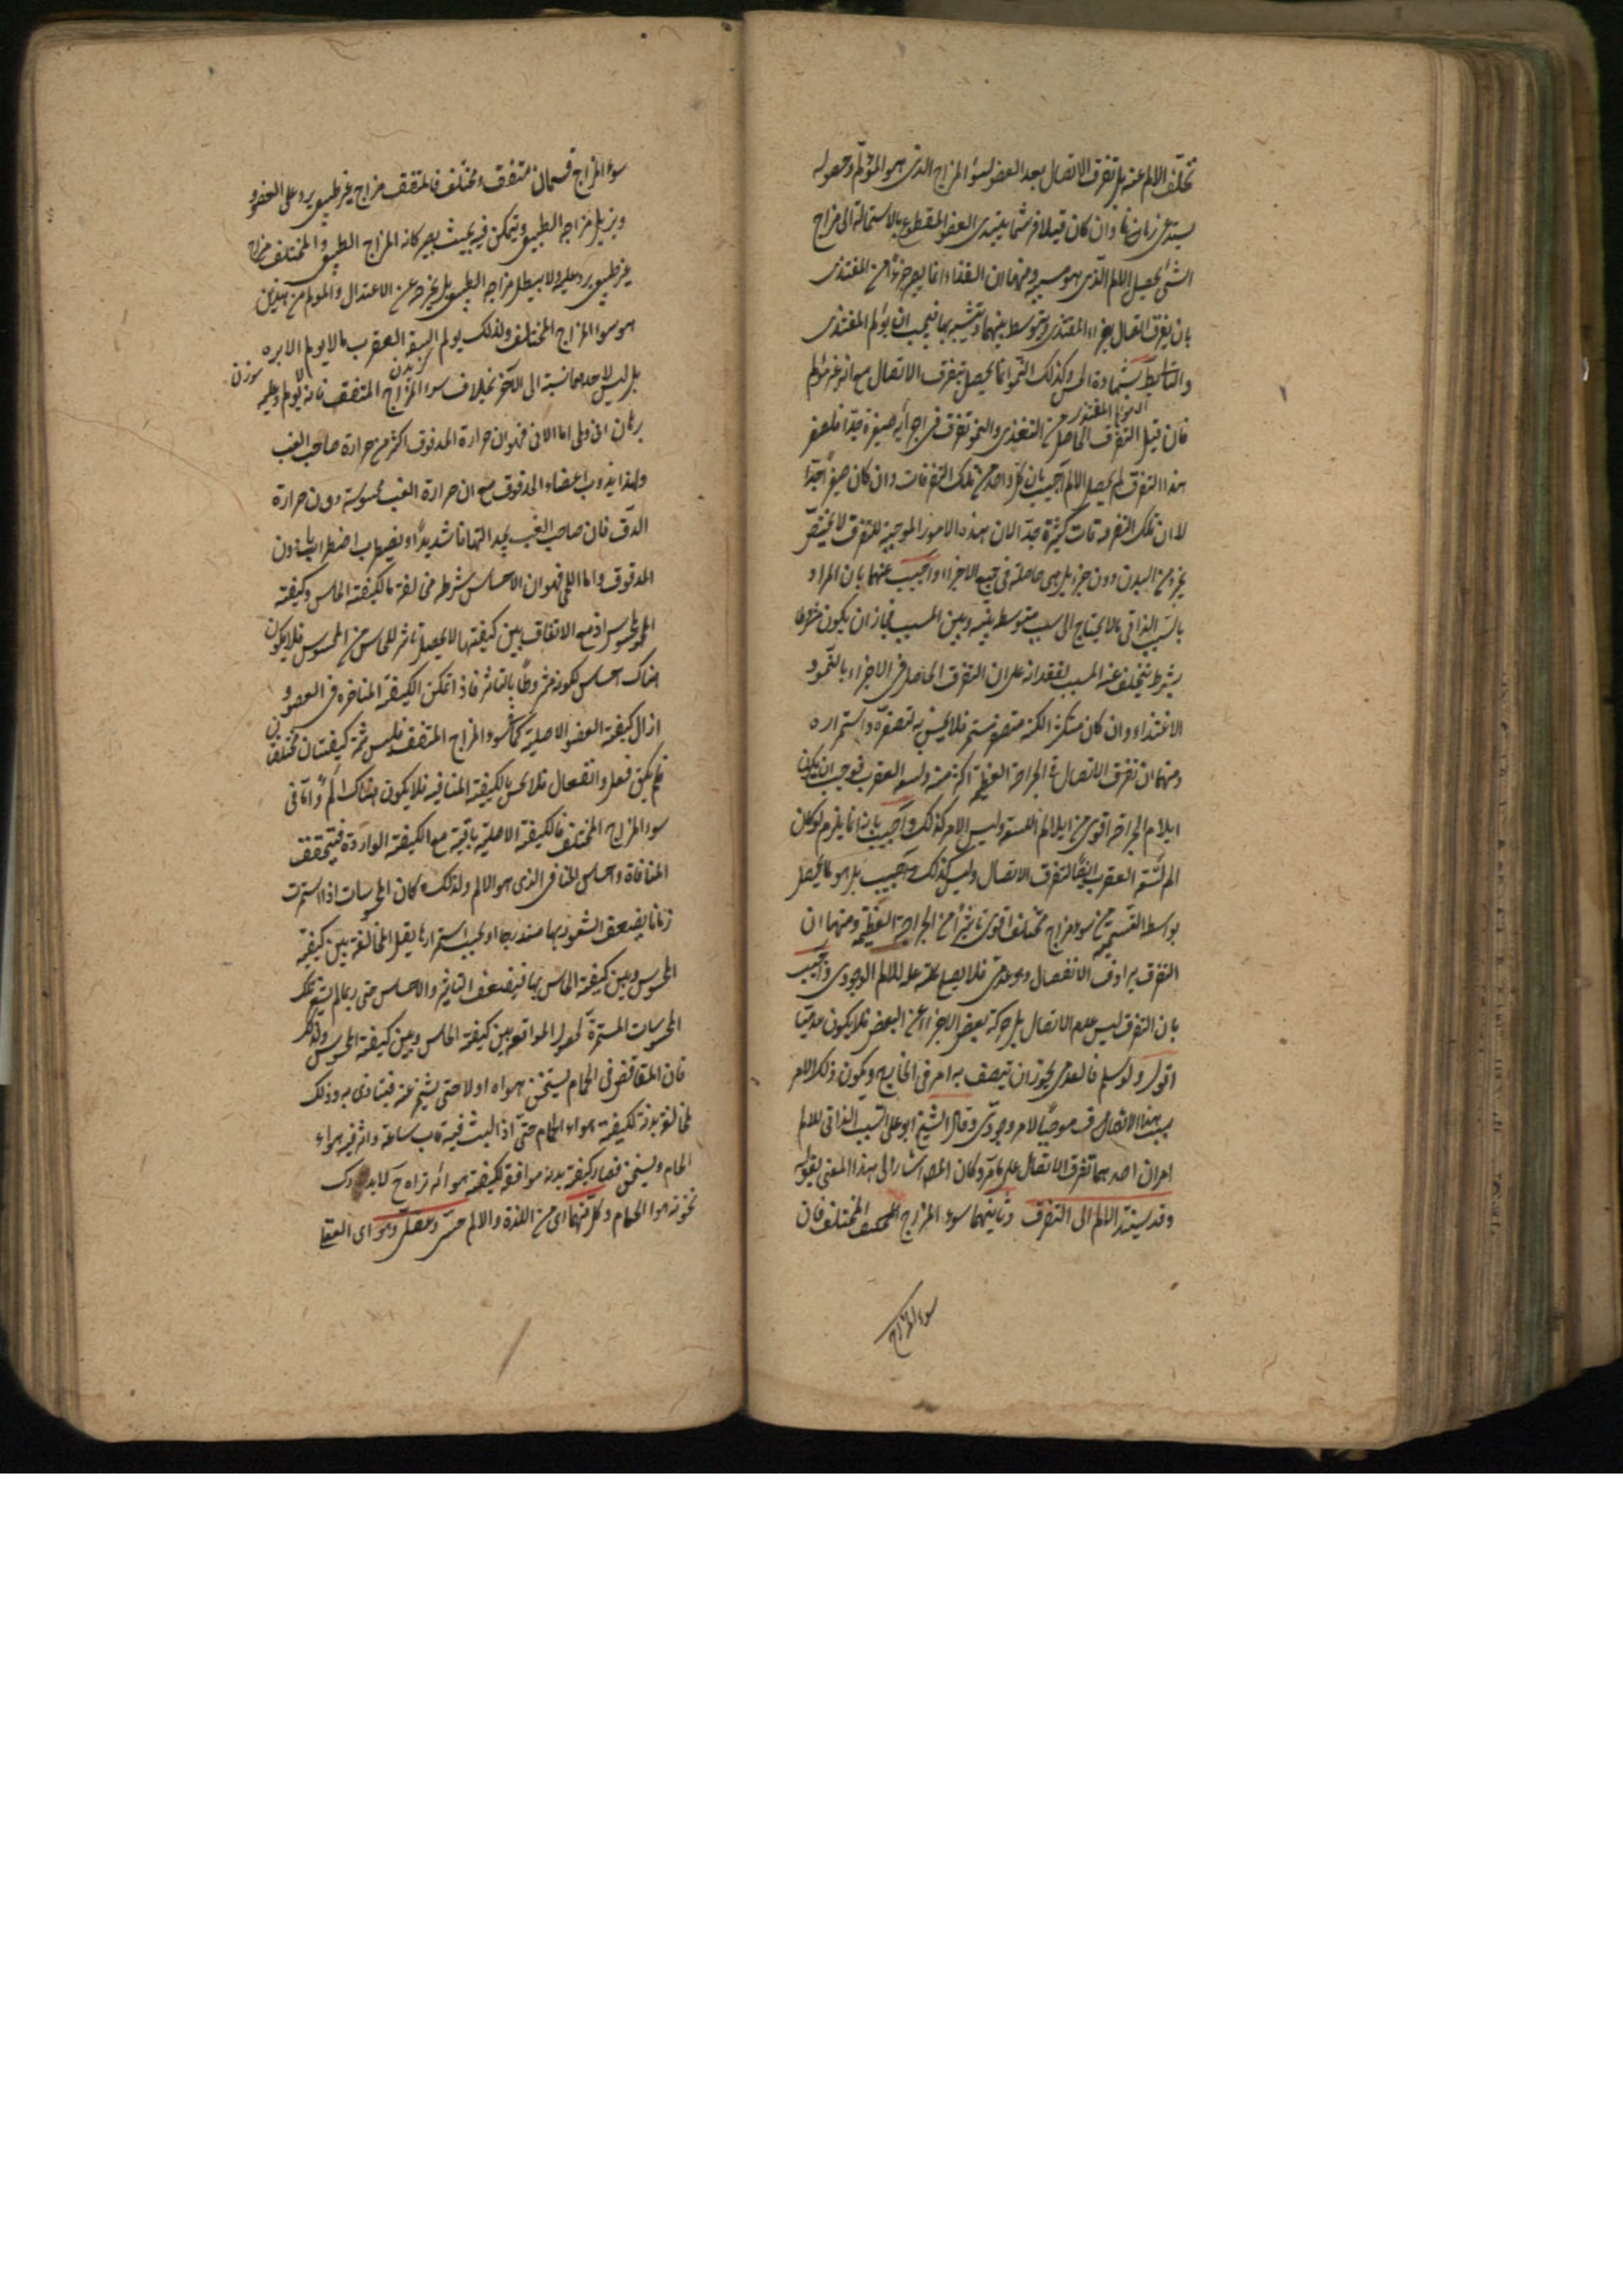 تخلف الالم عنه بل تفرق الاتصال يعد العضو لسوء المزاج الذى هو المؤلم وحصوله
يستدعى زمانا وان كان قليلا فربما يبتدى العضو المقطوع بالاستحالة الى مزاج
الشئ يحصل الالم الذى هو سببه ومنها ان الغذاء انما يصير جزءا من المغتذى
بان يفرق اتصال اجزاء المغتذى ويتوسط بينها ويتشبه بها فيجب ان يؤلم المغتذى
والتالى بط بشهادة الحس وكذلك النمو انما يحصل بتفرق الاتصال مع انه غير مؤلم
فان قيل التفرق الحاصل من التغذى والنمو تفرق فى اجزاء صغيرة جدا فلصغر
هذا التفرق لم يحصل الالم اجيب بان كل واحد من تلك التفرقات وان كان صغيرا جدا
الا ان تلك التفرقات كثيرة جدا لان هذه الامور الموجبة للتفرق لا يختص
بجزء من البدن دون جزء بل هى حاصلة فى جميع الاجزاء واجيب عنهما بان المراد
بالسبب الذاتى ما لا يحتاج الى سبب متوسط بينه وبين المسبب فجاز ان يكون مشروطا
بشرط يتخلف عنه المسبب لفقدانه على ان التفرق الحاصل فى الاجزاء بالنمو و
الاغتذاء وان كان متكثرا لكنه متصغر مستمر فلا يحس به لتصغره واستمراره
ومنها ان تفرق الاتصال فى الجراحة العظيمة اكثر منه ولسع العقرب فوجب ان يكون
ايلام الجراحة اقوى من ايلام اللسعة وليس الامر كذلك واجيب بانه انما يلزم لو كان
الم لسعة العقرب ايضا لتفرق الاتصال وليس كذلك بل هو مما يحصل
بواسطة السمية من سوء مزاج مختلف اقوى تاثيرا من الجراحة العظيمة ومنها ان
التفرق يرادف الانفصال وهو عدمى فلا يصلح علة للالم الوجودى واجيب
بان التفرق ليس عدم الاتصال بل حركة بعض الاجزاء عن البعض فلا يكون عدميا
اقول ولو سلم فالعدمى يجوز ان يتصف به امر فى الخارج ويكون ذلك الامر
بسبب هذا الاتصاف موجبا لامر وجودى وقال الشيخ ابو على السبب الذاتى للالم
امران احدهما تفرق الاتصال على ما مر وكان المصـ اشار الى هذا المعنى بقوله
وقد يستند الالم الى التفرق وثانيهما سوء المزاج المختلف فان
سوء المزاج
سوء المزاج قسمان متفق ومختلف فالمتفق مزاج غير طبيعى يرد على العضو و
ويزيل مزاجه الطبيعى ويتمكن فيه بحيث يصير كانه المزاج الطبيعى والمختلف مزاج
غير طبيعى يرد عليه ولا يبطل مزاجه الطبيعى بل يخرجه عن الاعتدال والمولم من هذين
هو سوء المزاج المختلف ولذلك يولم لسع العقرب ما لا يولم الابره سوزن
بل ليس لاحدهما نسبة الى الآخر بخلاف سوء المزاج المتفق فانه لا يولم وعليه
برهان انى ولمى اما الانى فهو ان حرارة المدقوق اكثر من حرارة صاحب الغب
ولهذا يذوب اعضاء المدقوق مع ان حرارة الغب محسوسة دون حرارة
الدق فان صاحب الغب يجد التهابا شديدا ويضطرب اضطرابا دون
المدقوق واما اللمى فهو ان الاحساس شرطه مخالفة ما لكيفية الحاس وكيفية
المحسوس اذ مع الاتفاق بين كيفيتهما لا يحصل تاثر للحاس من المحسوس فلا يكون
هناك احساس لكونه مشروطا بالتاثر فاذا تمكن الكيفية المنافرة فى العضو و
ازال كيفية العضو الاصلية كما فى سوء المزاج المتفق فليس ثمة كيفيتان مختلفتان
فلم يكن فعل وانفعال فلا يحس بالكيفية المنافية فلا يكون هناك الم واما فى
سوء المزاج المختلف فالكيفية الاصلية باقية مع الكيفية الواردة فيتحقق
المنافاة واحساس المنافى الذى هو الالم ولذلك كان المحسوسات اذا استمرت
زمانا يضعف الشعور بها متدرجا اذ بحسب استمرارها يقل المخالفة بين كيفية
المحسوس وبين كيفية الحاس بها فيضعف التاثر والاحساس حتى ربما لم يشعر بتلك
المحسوسات المستمرة لحصول الموافقة بين كيفية الحاس وبين كيفية المحسوس ولذلك
فان المتقاقص فى الحمام يستسخن هواه اولا حتى يشمئز عنه فيتاذى به وذلك
لمخالفة بدنه لكيفية هواء الحمام حتى اذا لبث فيه ساعة واثر فيه هواء
الحمام وتسخن فصار كيفية بدنه موافقة لكيفية هوائه تراه ح لا يدرك
سخونة هوا الحمام وكل منهما اى من اللذة والالم حسى وعقلى وهو اى العقلى